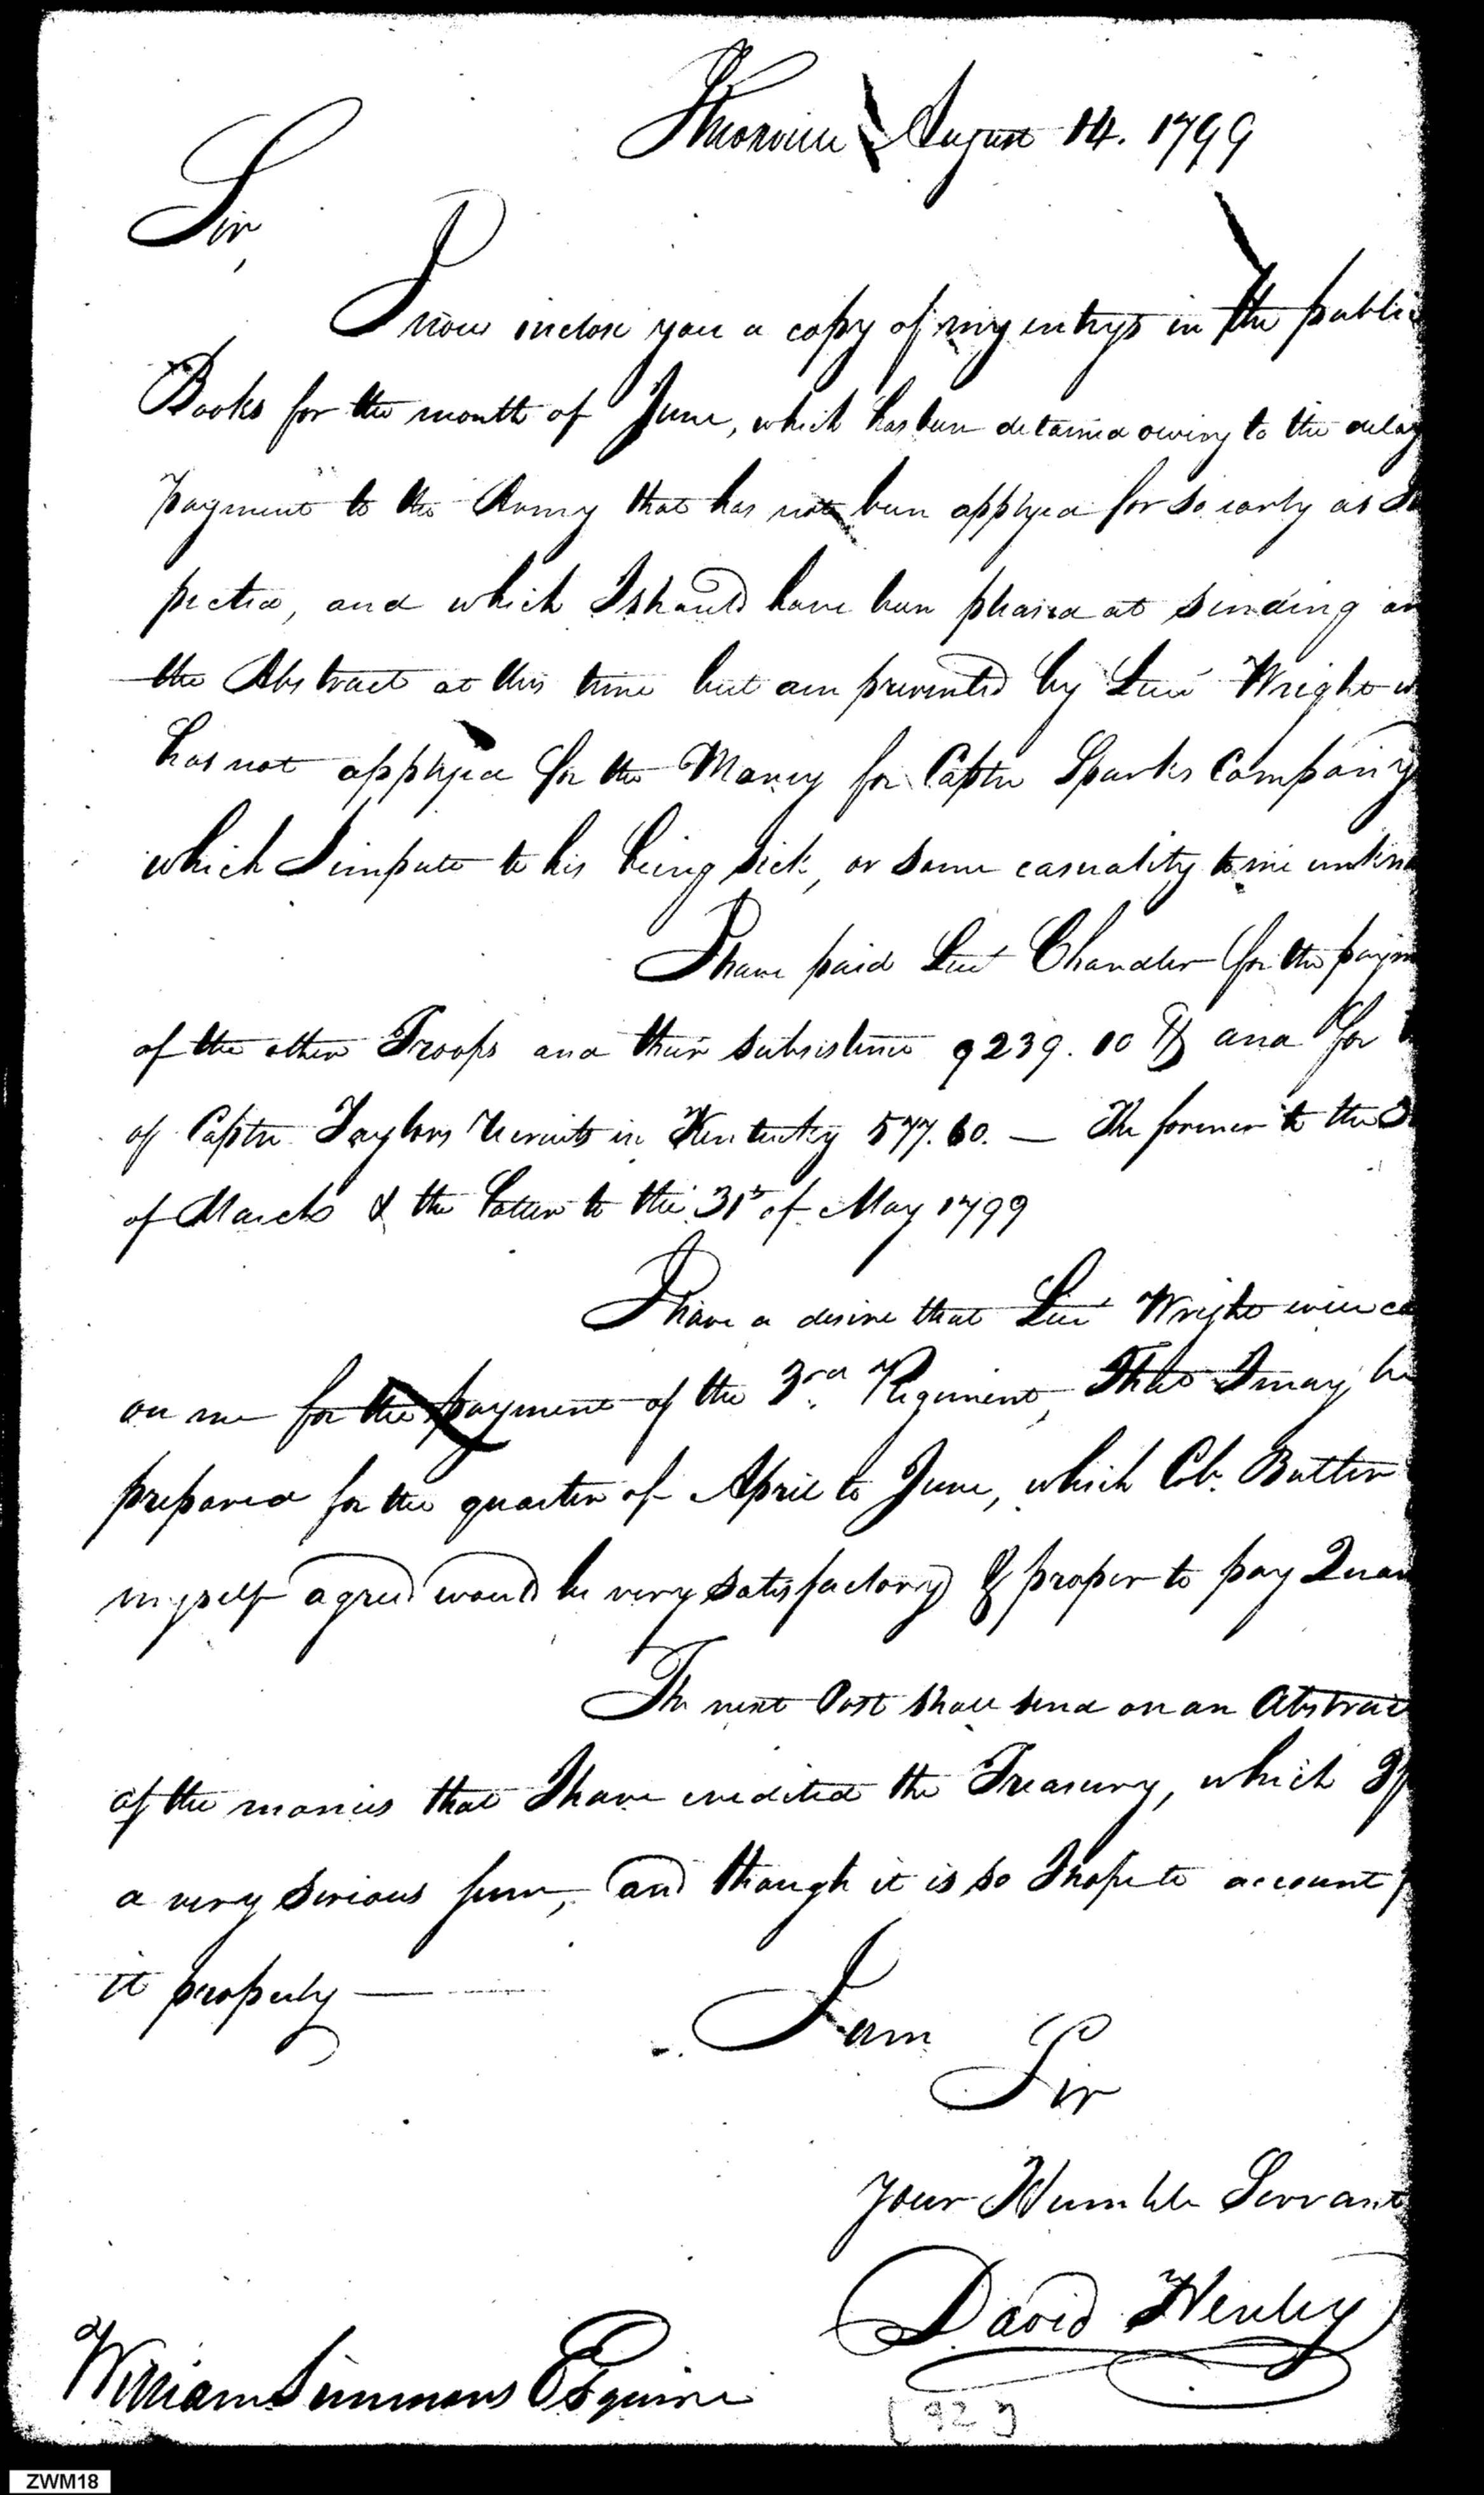 Knoxville August 14. 1799
Sir,
I now inclose you a copy of my entrys in the publi
Books for the month of June, which has been detained owing to the delay
payment to the Army that has not been applyed for so early as
pected, and which I should have been pleased at sending on
the Abstract at this time but am prevented by Lieut Wright
has not applyed for the Money for Captn Sparks Company
which I impute to his being sick, or some casuality to me unkno
I have paid Lieut Chandler for the paym
of the other Troops and their subsistence 9239.00 and for
of Captn Taylors recruits in Kentucky 577.60. — The former to the 3
of March & the latter to the 31st of May 1799
I have a desire that Lieut Wright will ca
on me for the payment of the 3rd Regiment, That I may be
prepared for the quarter of April to June, which Col. Butler
myself agreed would be very satisfactory & proper to pay Quar
The next Post shall send on an Abstract
of the monies that I have credited the Treasury, which
a very serious sum, and though it is so I hope to account f
it properly —
I am
Sir
Your Humble Servant
David Henley
William Simmons Esquire
[92]
ZWM18